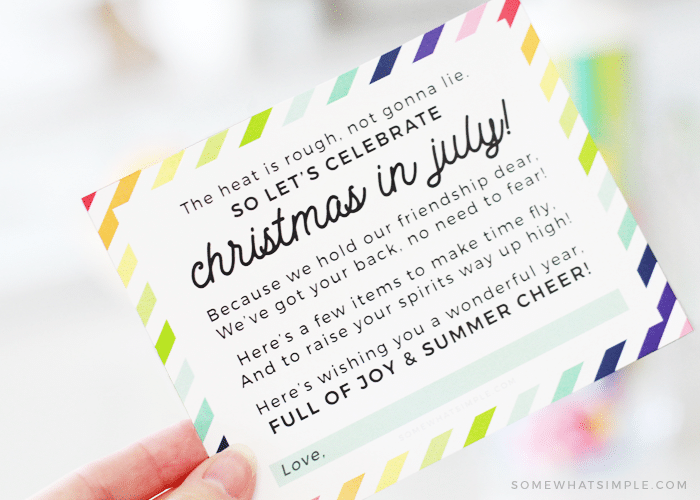 The heat is rough, not gonna lie.
SO LET'S CELEBRATE
christmas in july!
Because we hold our friendship dear,
We've got your back, no need to fear!
Here's a few items to make time fly,
And to raise your spirits way up high!
Here's wishing you a wonderful year,
FULL OF JOY & SUMMER CHEER!
Love,
SOMEWHATSIMPLE.COM
SOMEWHATSIMPLE.COM